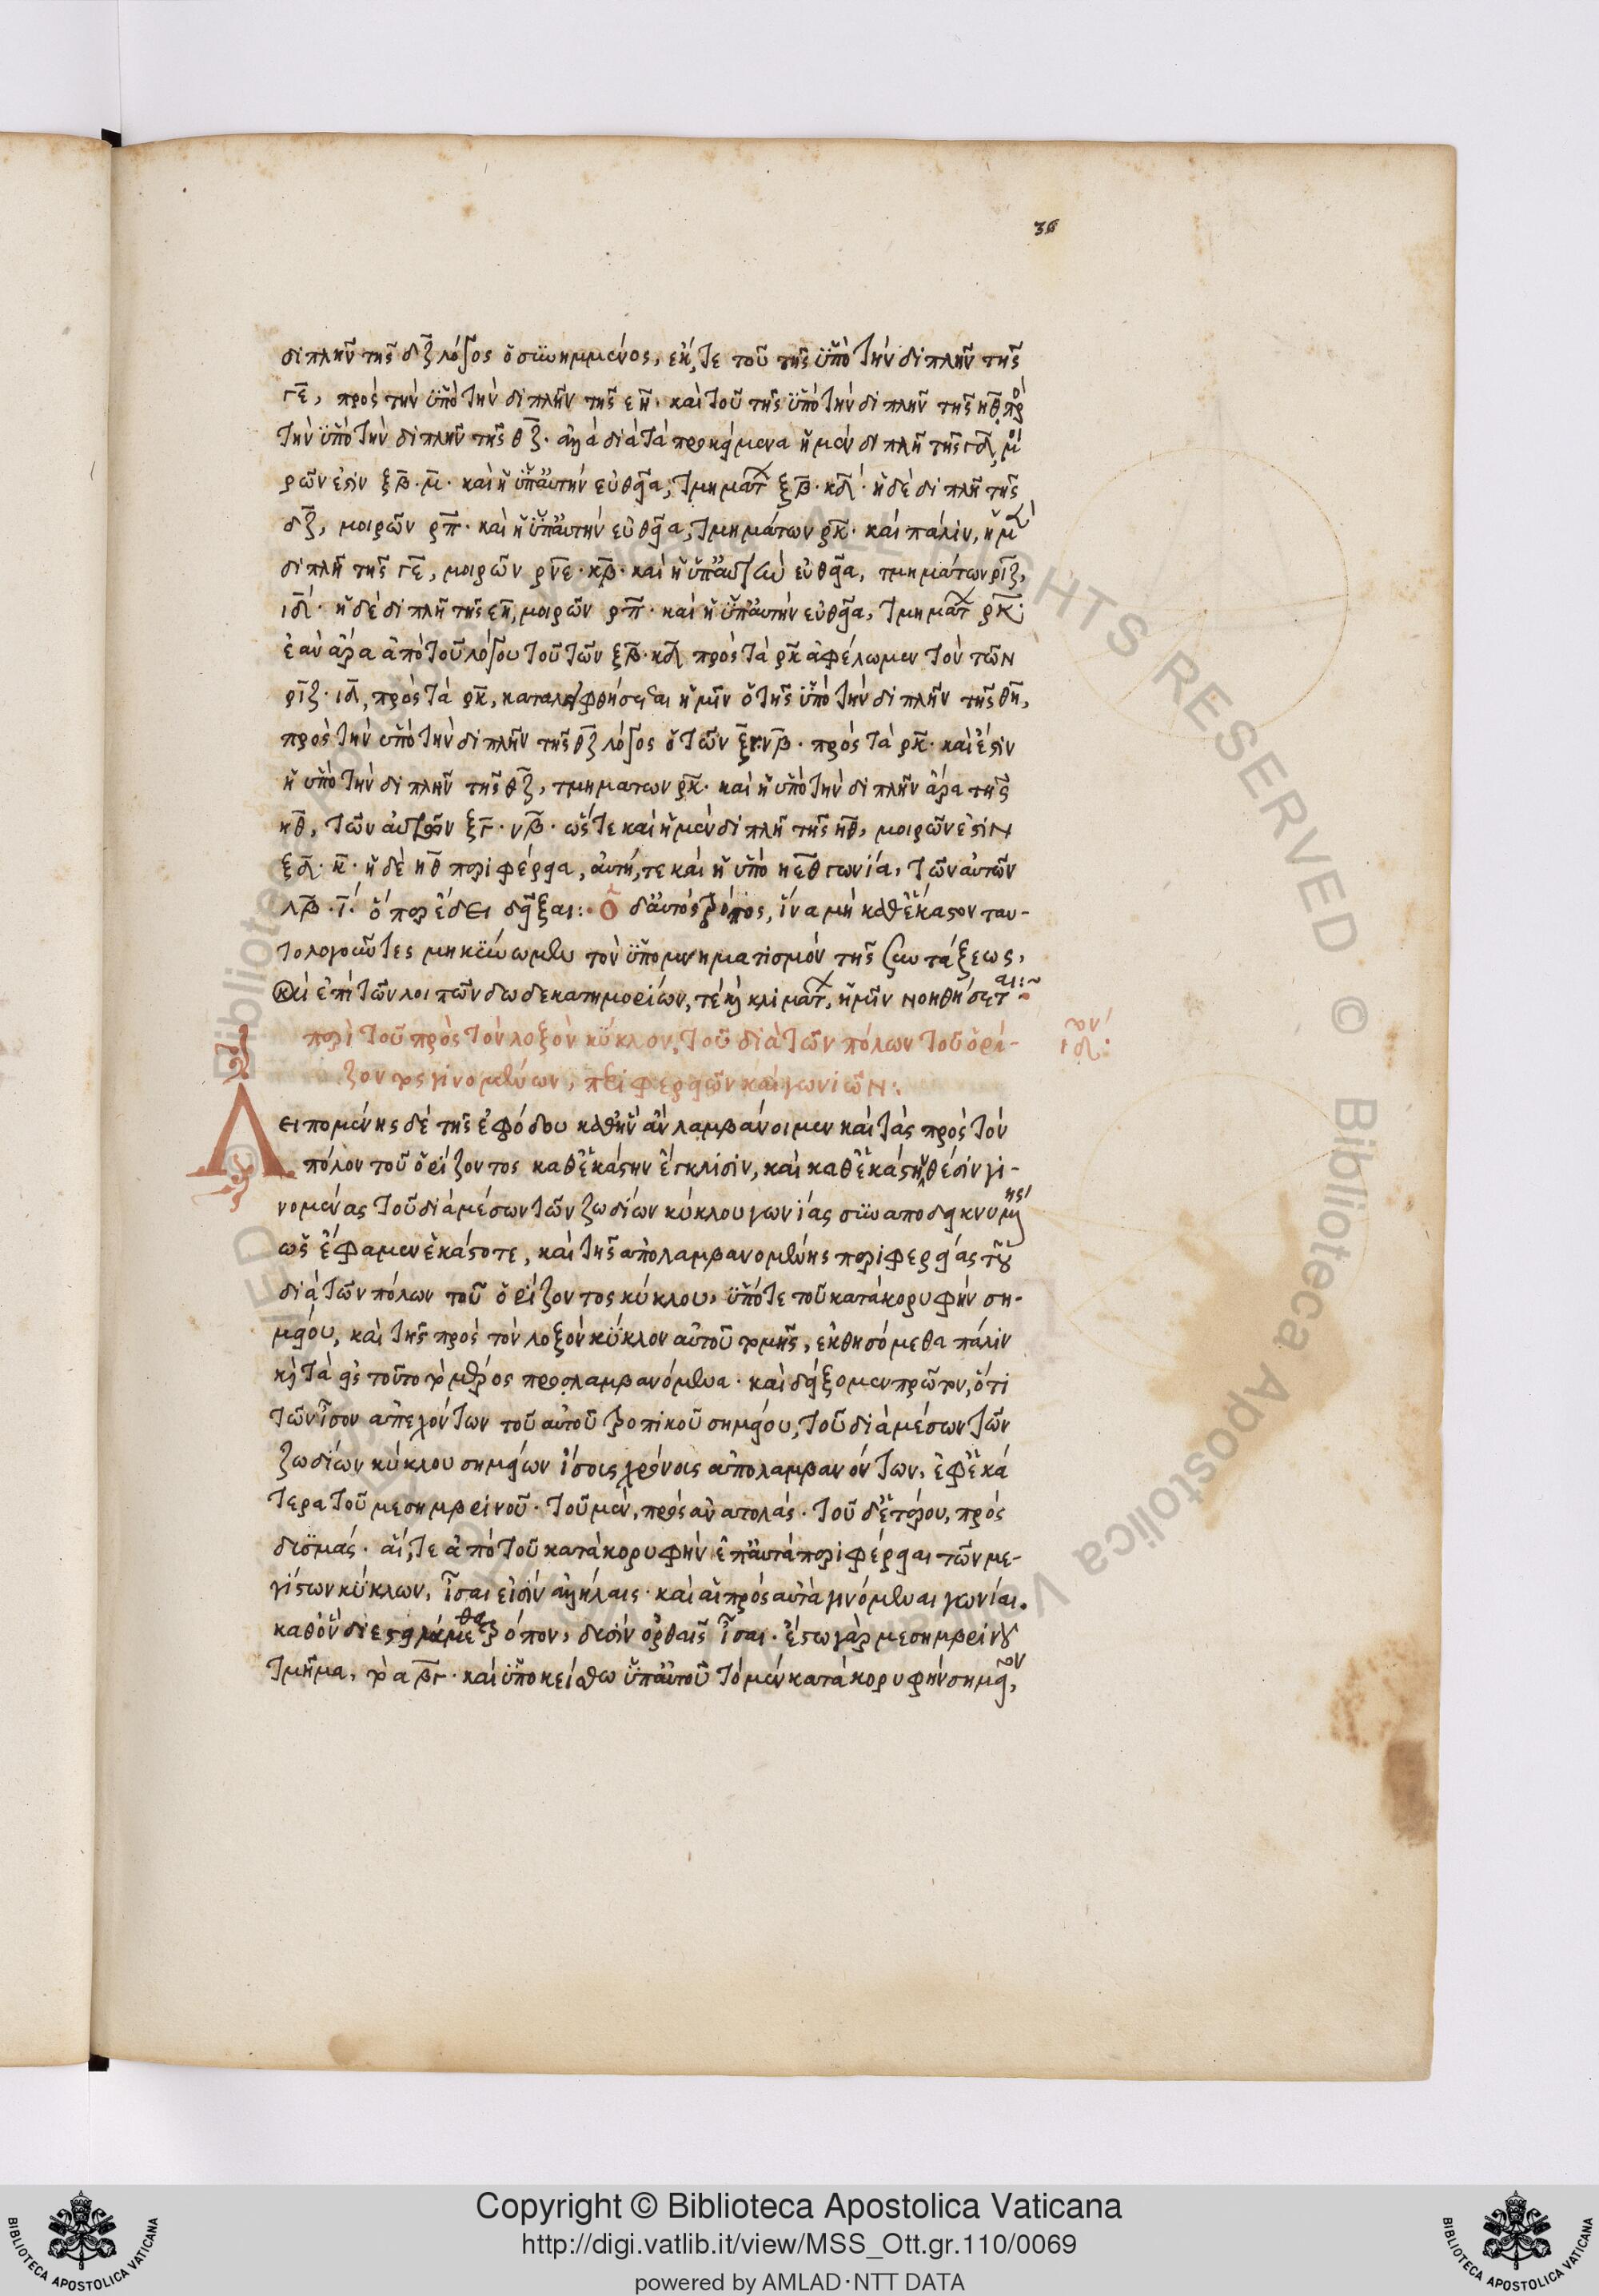 36
διπλῆν τῆς δζ λόγος ὁ συνημμένος, ἔκ, τε τοῦ τῆς ὑπὸ τὴν διπλῆν τῆς
γε, πρὸς τὴν ὑπὸ τὴν διπλῆν τῆς εη· καὶ τοῦ τῆς ὑπὸ τὴν διπλῆν τῆς ηθ πρὸς
τὴν ὑπὸ τὴν διπλῆν τῆς θζ· ἀλλὰ διὰ τὰ προκείμενα ἡ μὲν διπλῆ τῆς γδ, μοι
ρῶν ἐστὶν ξβ· μ· καὶ ἡ ὑπ' αὐτὴν εὐθεῖα, τμημάτ ξβ· κδ· ἡ δὲ διπλῆ τῆς
δζ, μοιρῶν ρπ· καὶ ἡ ὑπ' αὐτὴν εὐθεῖα, τμημάτων ρκ· καὶ πάλιν, ἡ μὲν
διπλῆ τῆς γε, μοιρῶν ρνε· κβ· καὶ ἡ ὑπ' αὐτὴν εὐθεῖα, τμημάτων ριζ,
ιδ· ἡ δὲ διπλῆ τῆς εη, μοιρῶν ρπ· καὶ ἡ ὑπ' αὐτὴν εὐθεῖα, τμημάτ ρκ·
ἐὰν ἄρα ἀπὸ τοῦ λόγου τοῦ τῶν ξβ· κδ πρὸς τὰ ρκ ἀφέλωμεν τὸν τῶν
ριζ· ιδ, πρὸς τὰ ρκ, καταλειφθήσεται ἡμῖν ὁ τῆς ὑπὸ τὴν διπλῆν τῆς θη,
πρὸς τὴν ὑπὸ τὴν διπλῆν τῆς θζ λόγος ὁ τῶν ξγ νβ· πρὸς τὰ ρκ· καὶ ἐστὶν
ἡ ὑπὸ τὴν διπλῆν τῆς θζ, τμηματων ρκ· καὶ ἡ ὑπὸ τὴν διπλῆν ἄρα τῆς
ηθ, τῶν αὐτῶν ξγ· νβ· ὥστε καὶ ἡ μὲν διπλῆ τῆς ηθ, μοιρῶν ἐστὶν
ξδ· κ· ἡ δὲ ηθ περιφέρεια, αὐτή, τε καὶ ἡ ὑπὸ ηεθ γωνία, τῶν αὐτῶν
λβ· ι· ὅπερ ἔδει δεῖξαι:· Ὁ δ' αὐτὸς τρόπος, ἵνα μὴ καθ' ἕκαστον ταυ-
τολογοῦντες μηκύνωμεν τὸν ὑπομνηματισμὸν τῆς συντάξεως,
καὶ ἐπὶ τῶν λοιπῶν δωδεκατημορίων, τὲ καὶ κλιμάτ, ἡμῖν νοηθήσεται:~
περὶ τοῦ πρὸς τὸν λοξὸν κύκλον, τοῦ διὰ τῶν πόλων τοῦ ὁρί-
ζοντος γινομένων, περιφερειῶν καὶ γωνιῶν:
Λειπομένης δὲ τῆς ἐφόδου καθ' ἣν ἂν λαμβάνοιμεν καὶ τὰς πρὸς τὸν
πόλον τοῦ ὁρίζοντος καθ' ἑκάστην ἔγκλισιν, καὶ καθ' ἑκάστην θέσιν γι-
νομένας τοῦ διὰ μέσων τῶν ζωδίων κύκλου γωνίας συναποδεικνυμένης
ὡς ἔφαμεν ἑκάστοτε, καὶ τῆς ἀπολαμβανομένης περιφερείας τοῦ
διὰ τῶν πόλων τοῦ ὁρίζοντος κύκλου, ὑπό τε τοῦ κατὰ κορυφὴν ση-
μείου, καὶ τῆς πρὸς τὸν λοξὸν κύκλον αὐτοῦ τομῆς, ἐκθησόμεθα πάλιν
καὶ τὰ εἰς τοῦτο τὸ μέρος προλαμβανόμενα· καὶ δείξομεν πρῶτον, ὅτι
τῶν ἴσον ἀπεχόντων τοῦ αὐτοῦ τροπικοῦ σημείου, τοῦ διὰ μέσων τῶν
ζωδίων κύκλου σημείων ἴσοις χρόνοις ἀπολαμβανόντων, ἐφ' ἑκά
τερα τοῦ μεσημβρινοῦ· τοῦ μὲν, πρὸς ἀνατολάς· τοῦ δ' ἑτέρου, πρὸς
δυσμάς· αἵ, τε ἀπὸ τοῦ κατὰ κορυφὴν ἐπ' αὐτὰ περιφέρειαι τῶν με-
γίστων κύκλων, ἴσαι εἰσὶν ἀλλήλαις· καὶ αἱ πρὸς αὐτὰ γινόμεναι γωνίαι.
καθ' ὃν διεστειλάμεθα τρόπον, δυσὶν ὀρθαῖς ἴσαι· ἔστω γὰρ μεσημβρινοῦ
τμῆμα, τὸ αβγ· καὶ ὑποκείσθω ὑπ' αὐτοῦ τὸ μὲν κατὰ κορυφὴν σημεῖον,
Copyright © Biblioteca Apostolica Vaticana
http://digi.vatlib.it/view/MSS_Ott.gr.110/0069
powered by AMLAD·NTT DATA
BIBLIOTECA APOSTOLICA VATICANA
BIBLIOTECA APOSTOLICA VATICANA